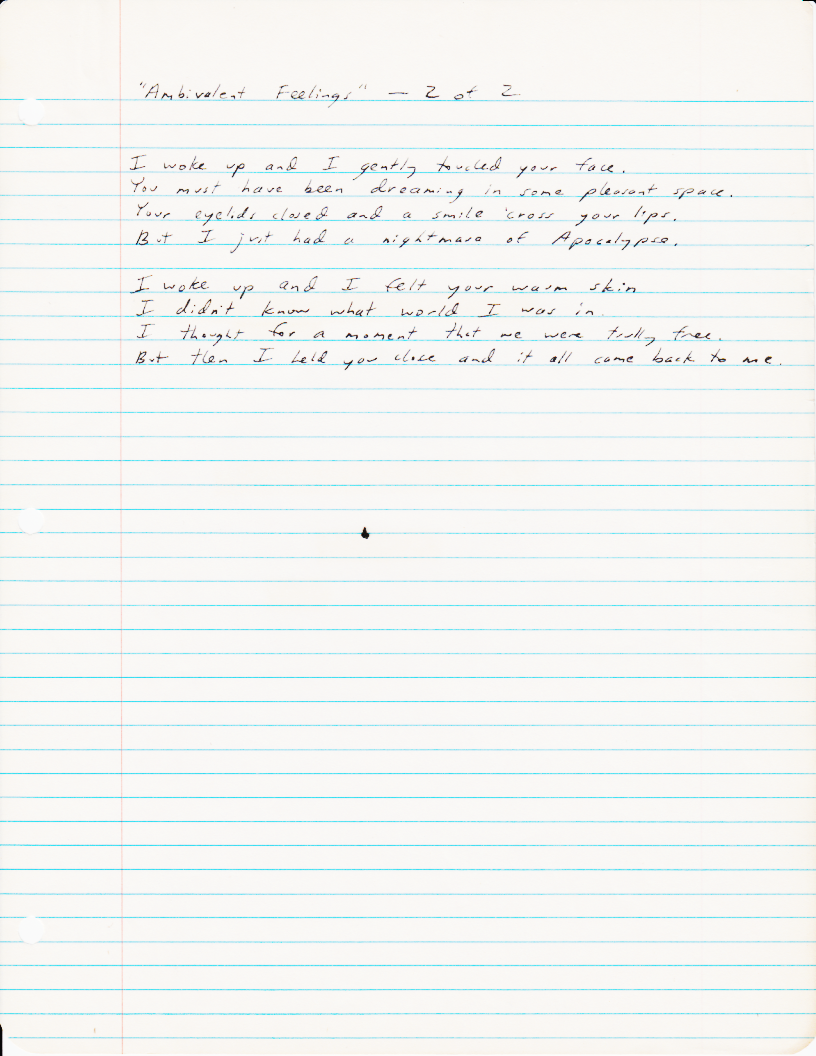 "Ambivalent Feelings" — 2 of 2
I woke up and I gently touched your face.
You must have been dreaming in some pleasant space.
Your eyelids closed and a smile 'cross your lips.
But I just had a nightmare of Apocalypse.
I woke up and I felt your warm skin
I didn't know what world I was in.
I thought for a moment that we were trully free.
But then I held you close and it all came back to me.